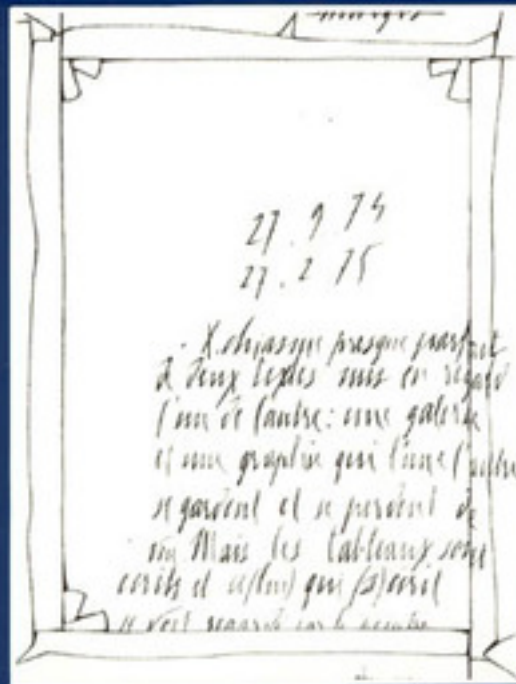 marges
27. 9 74
27. 2 75
. X chiasme presque parfait
de deux textes mis en regard
l'un de l'autre: une galerie
et une graphie qui l'une l'autre
se gardent et se perdent de
vue Mais les tableaux sont
écrits et ce(lui) qui (s)écrit
se voit regardé par le peintre